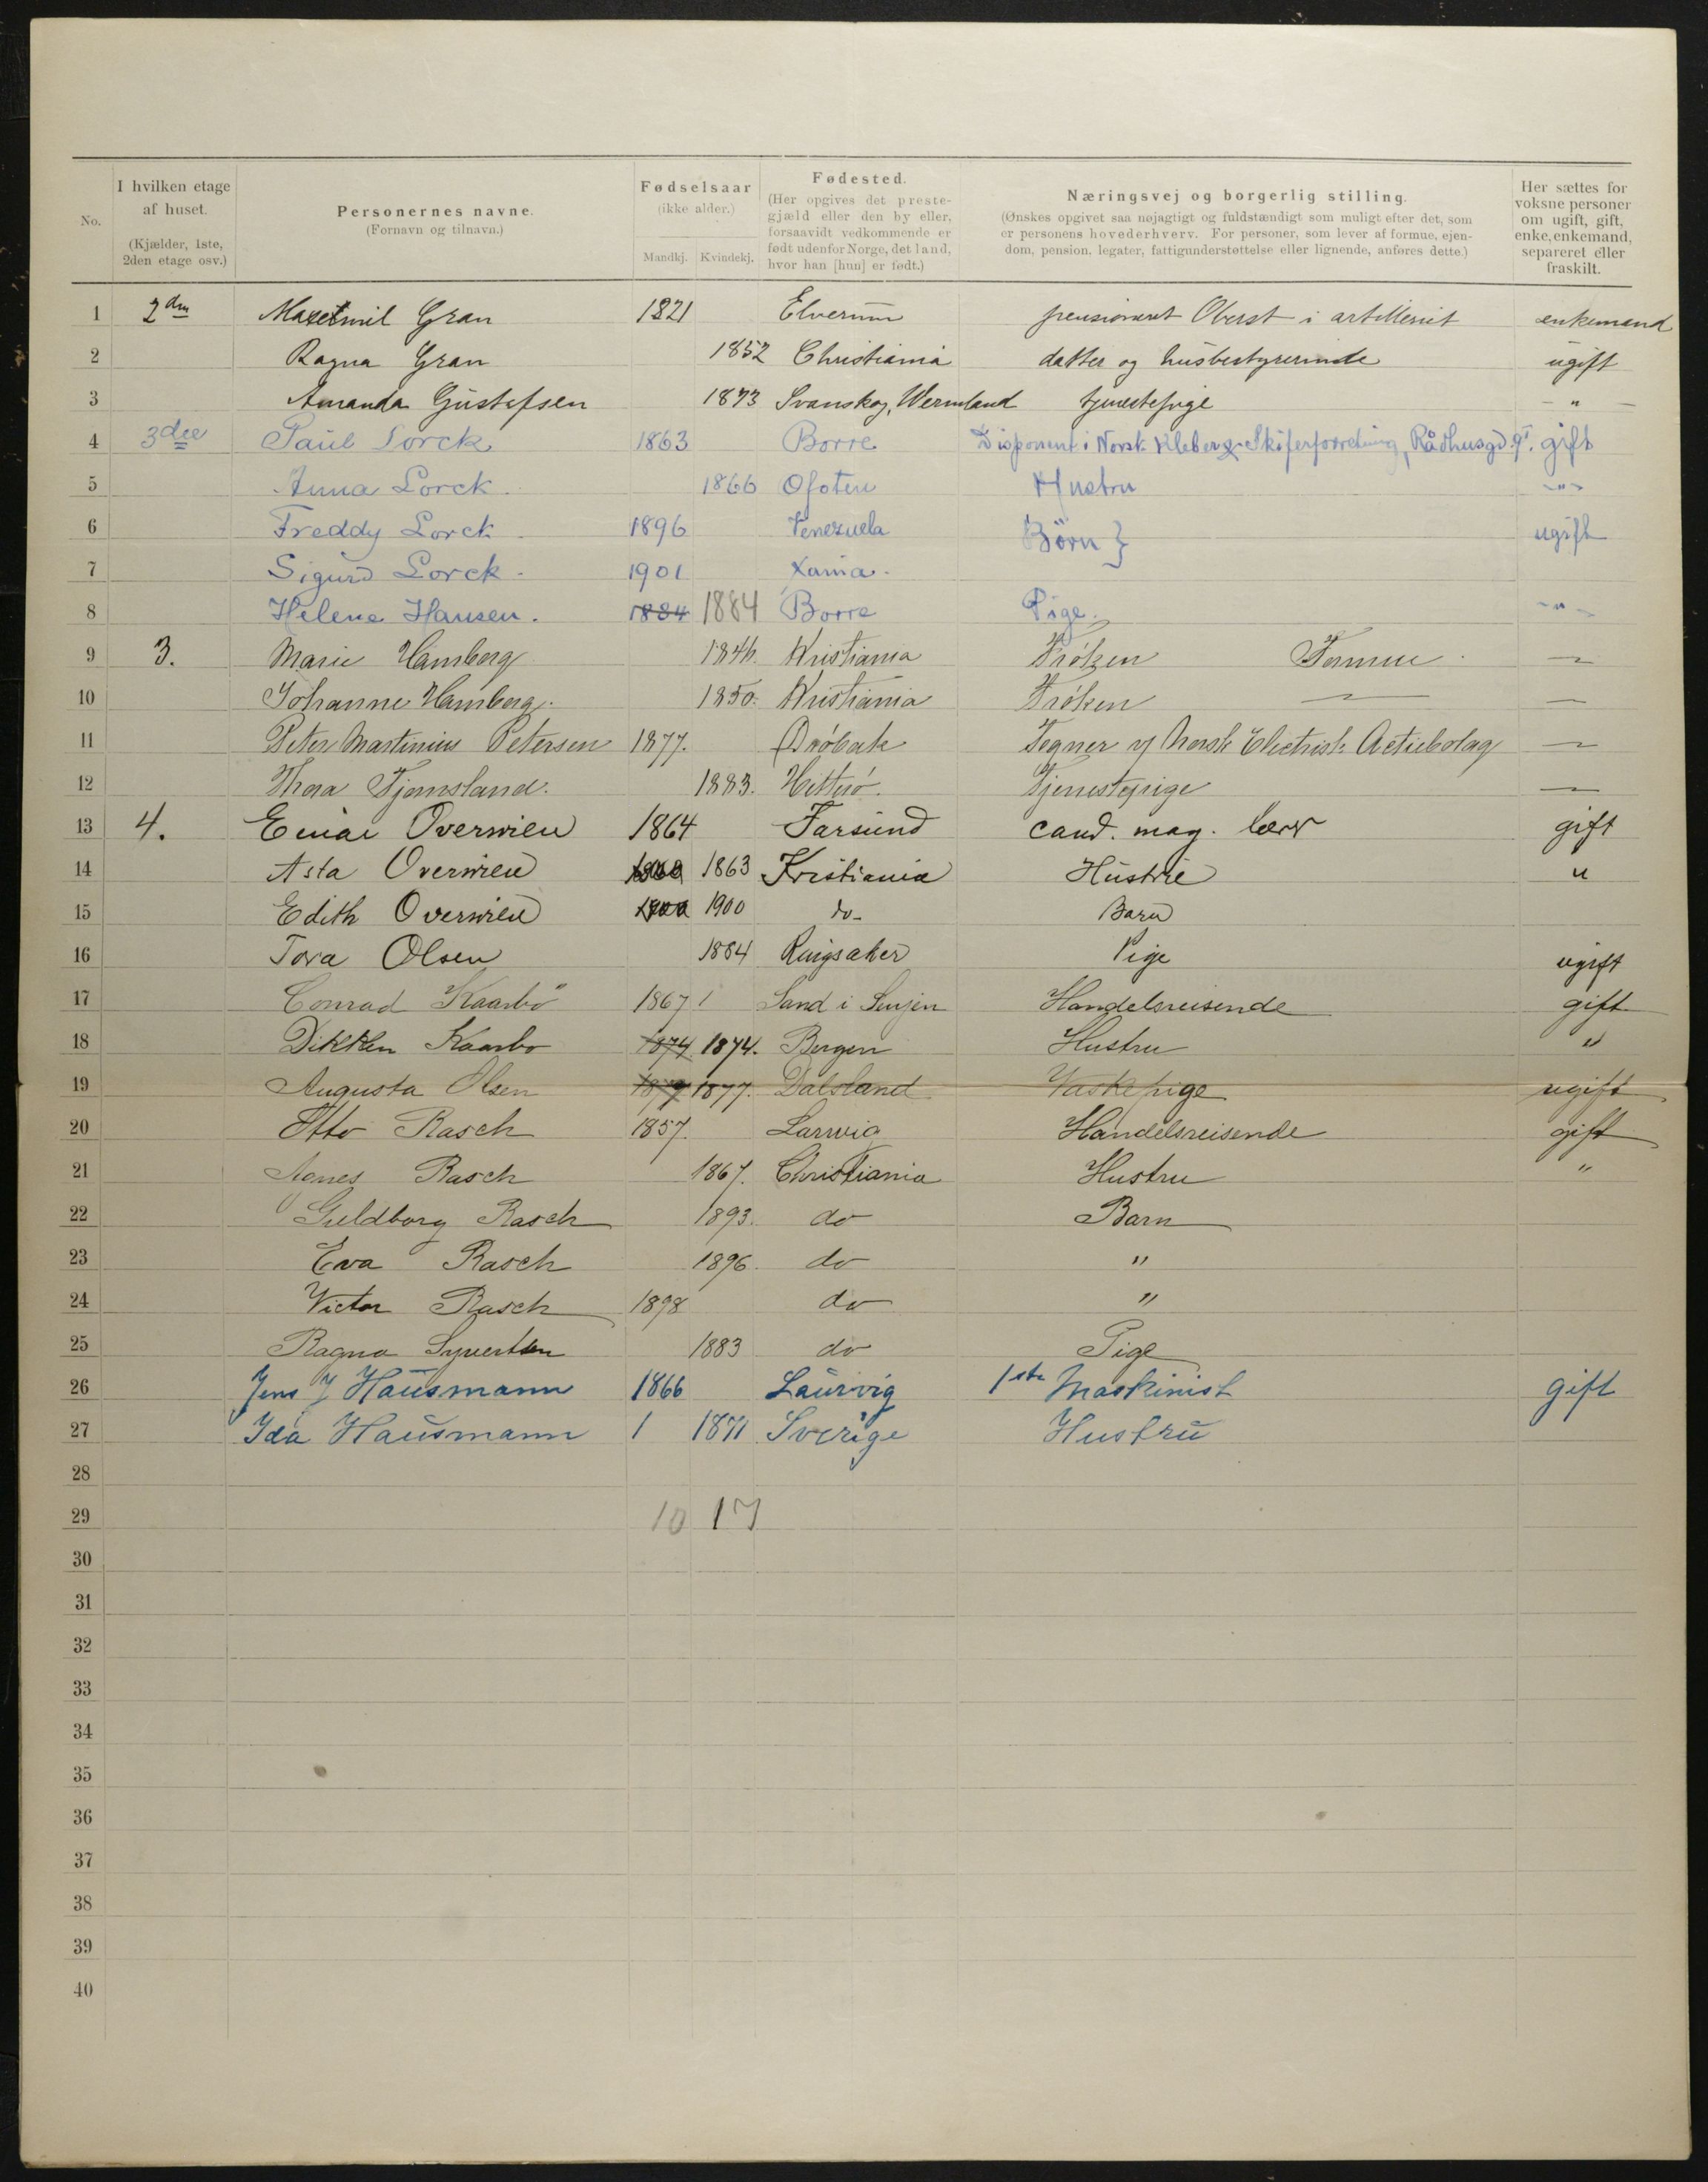 No. I hvilken etage af huset. (Kjælder, 1ste, 2den etage osv.) Personernes navne. (Fornavn og tilnavn.) Fødselsaar (ikke alder.) Mandkj. Kvindekj. Fødested. (Her opgives det prestegjæld eller den by eller, forsaavidt vedkommende er født udenfor Norge, det land, hvor han [hun] er født.) Næringsvej og borgerlig stilling. (Ønskes opgivet saa nøjagtigt og fuldstændigt som muligt efter det, som er personens hovederhverv. For personer, som lever af formue, ejendom, pension, legater, fattigunderstøttelse eller lignende, anføres dette.) Her sættes for voksne personer om ugift, gift, enke, enkemand, separeret eller fraskilt.
1 2den Maximil Gran 1821 Elverum pensioneret Oberst i artilleriet enkemand
2 Ragna Gran 1852 Christiania datter og husbestyrerinde ugift
3 Amanda Gustafsen 1873 Svanskog, Wermland tjenestepige — " —
4 3die Paul Lorck 1863 Borre Disponent i Norsk Kleber & Skiferforretning, Rådhusgd. 9I. gift
5 Anna Lorck. 1866 Ofoten Hustru - " -
6 Freddy Lorck 1896 Venezuela Børn } ugift
7 Sigurd Lorck. 1901 Xania.
8 Helene Hansen. 1884 1884 Borre Pige. - " -
9 3. Marie Hamborg 1846. Kristiania Frøken Formue. —
10 Johanne Hamborg. 1850. Kristiania Frøken — —
11 Peter Martinius Petersen 1877. Drøbak Tegner v/ Norsk Electrisk Actiebolag —
12 Thora Tjomsland. 1883. Hitterø. Tjenestepige —
13 4. Einar Overwien 1864 Farsund cand. mag. lærer gift
14 Asta Overwien 1863 Kristiania Hustru "
15 Edith Overwien 1900 1900 do- Barn
16 Tora Olsen 1884 Ringsaker Pige ugift
17 Conrad Kaarbø 1867 1 Sand i Senjen Handelsreisende gift
18 Dikken Kaarbo 1874 1874. Bergen Hustru "
19 Augusta Olsen 1877 1877. Dalsland Vaskepige ugift
20 Otto Rasch 1857. Larwig Handelsreisende gift
21 Agnes Rasch 1867. Christiania Hustru "
22 Guldborg Rasch 1893. do Barn
23 Eva Rasch 1896. do "
24 Victor Rasch 1898 do "
25 Ragna Syvertsen 1883 do Pige
26 Jens J Hausmann 1866 Laurvig 1ste Maskinist gift
27 Ida Hausmann 1 1871 Sverige Hustru
28
29 10 17
30
31
32
33
34
35
36
37
38
39
40